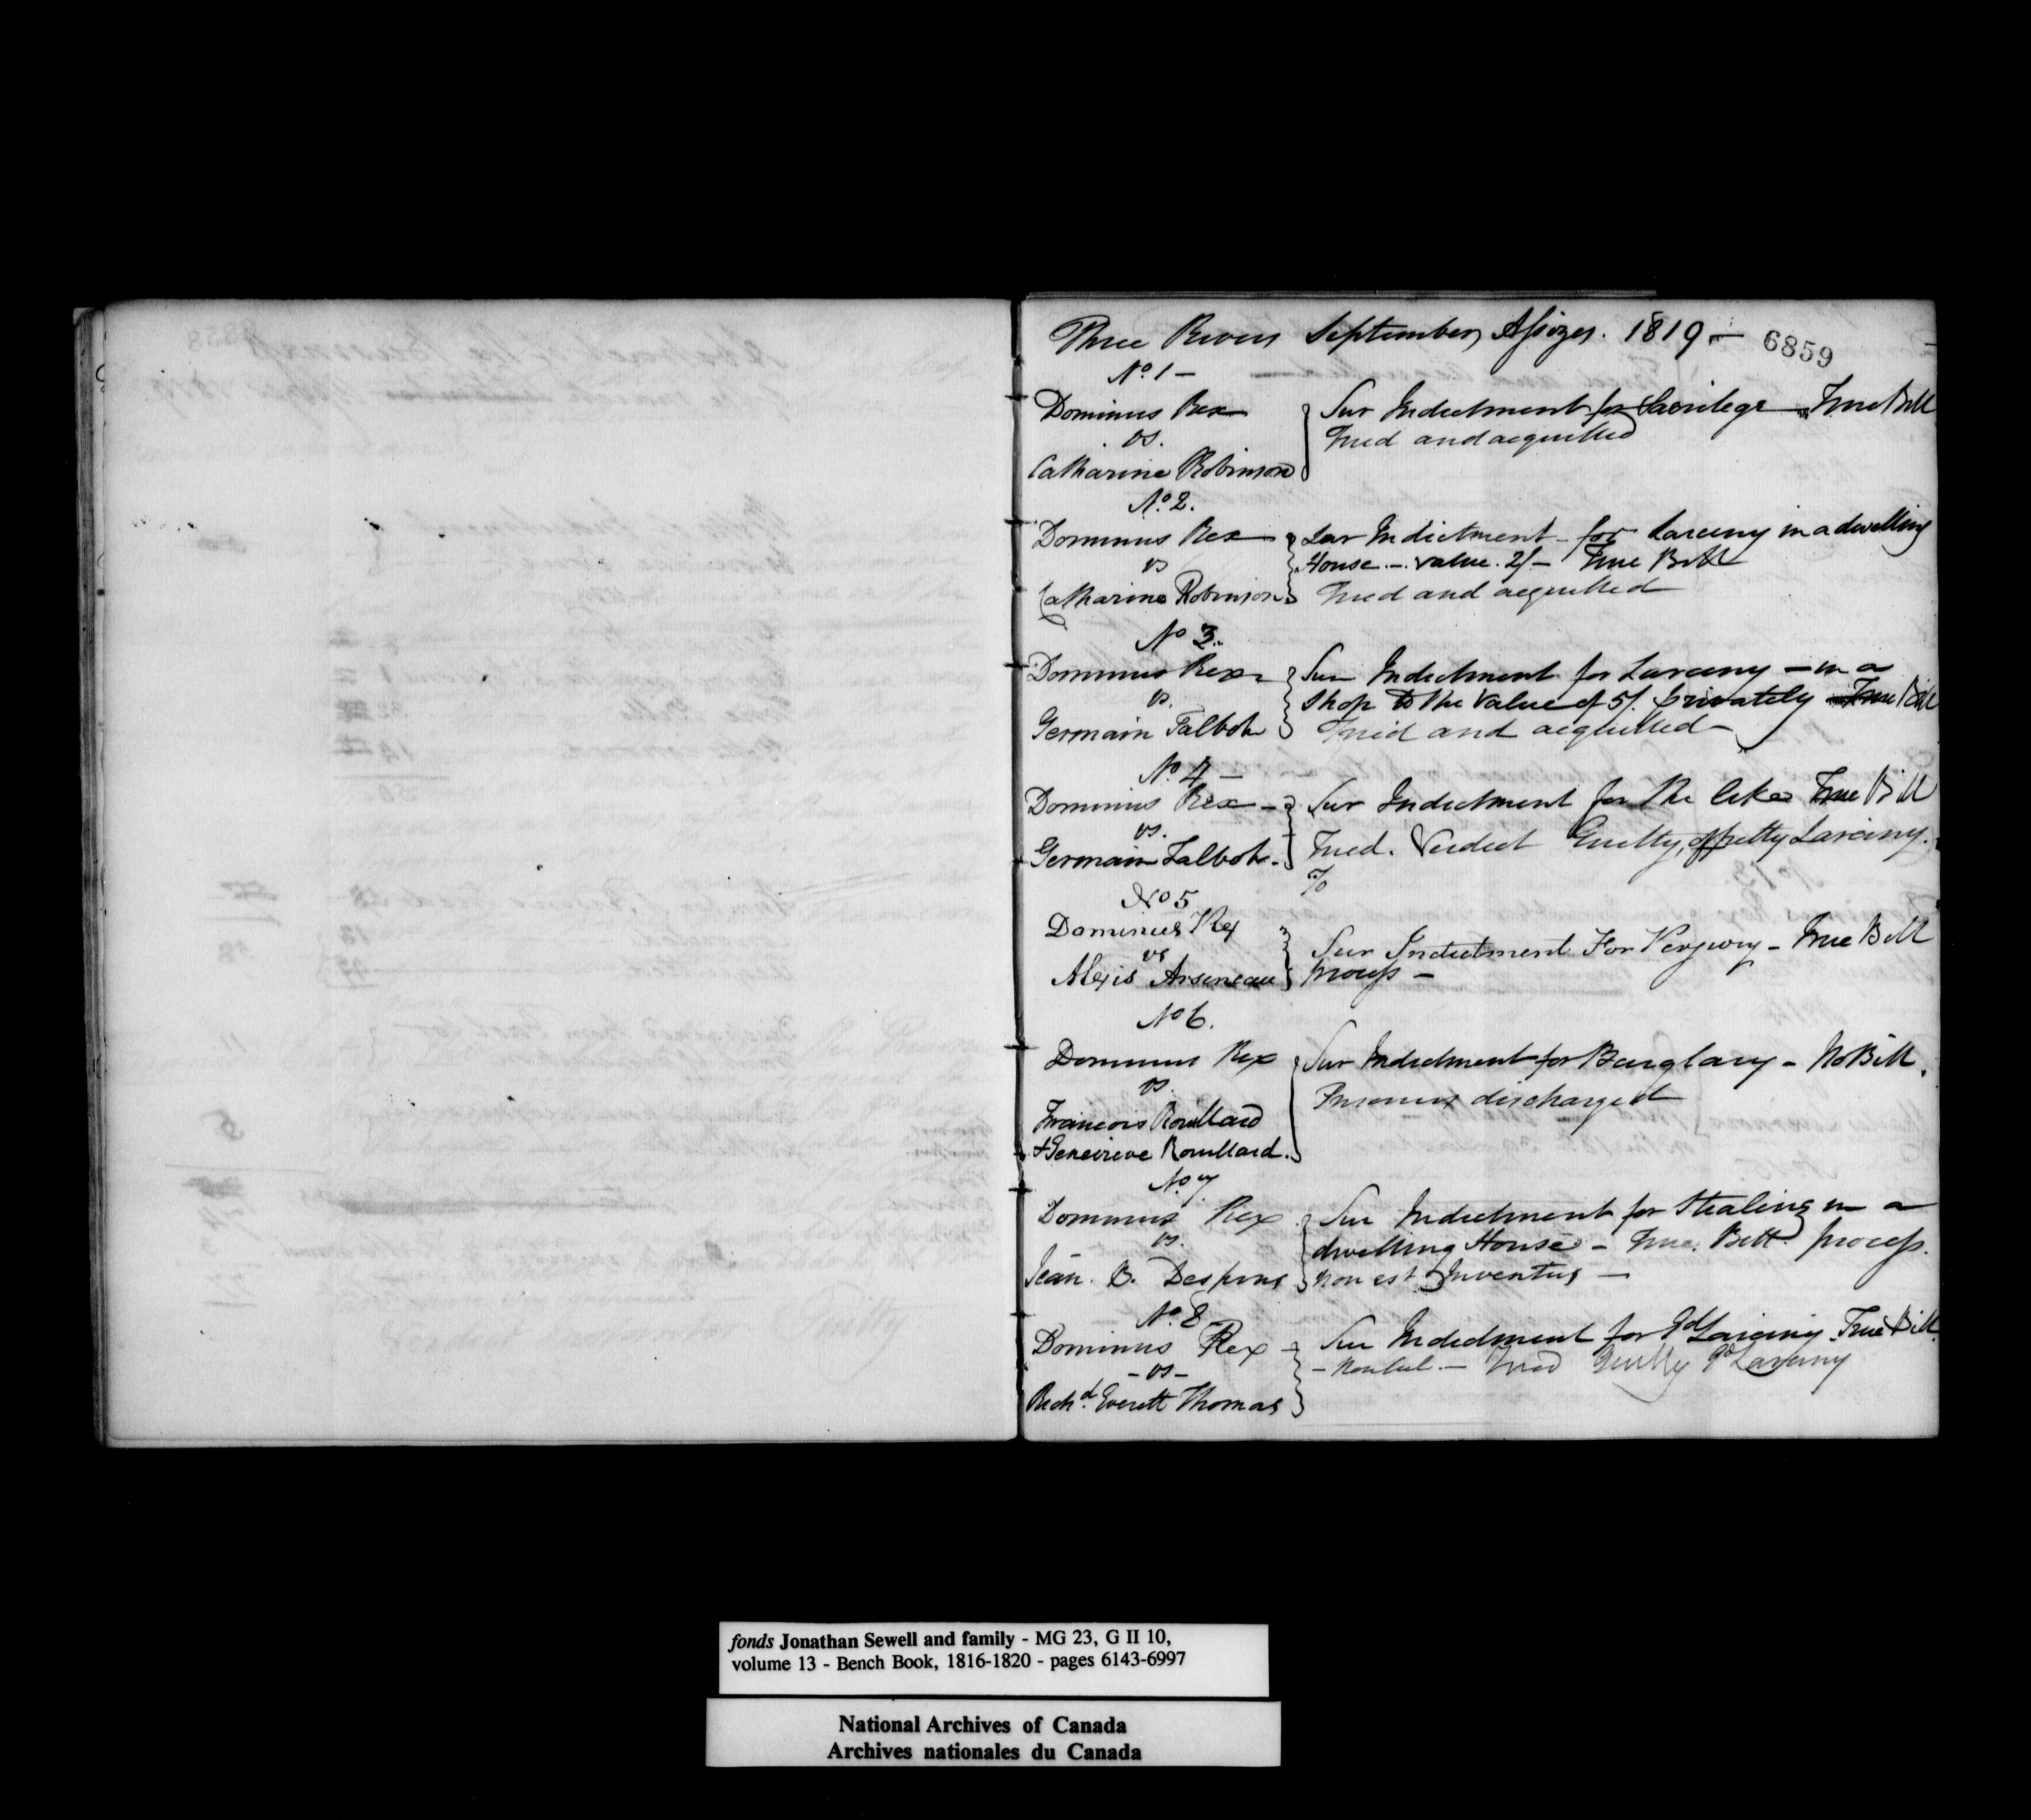 Three Rivers September Assizes. 1819 —
6859
No. 1 —
Dominus Rex
vs.
Catharine Robinson
Sur Indictment for Sacrilege — True Bill
Tried and acquitted
No. 2.
Dominus Rex
vs
Catharine Robinson
Sur Indictment — for Larceny in a dwelling
House — value. 2/ — True Bill
Tried and acquitted
No 3.
Dominus Rex
vs.
Germain Talbot
Sur Indictment for Larceny — in a
Shop to the Value of 5/. privately — True Bill
Tried and acquitted —
No. 4 —
Dominus Rex —
vs.
Germain Talbot.
Sur Indictment for the like True Bill
Tried. Verdict Guilty, of petty Larceny.
No 5
Dominus Rex
vs
Alexis Arseneau
Sur Indictment For Perjury — True Bill
process —
No 6.
Dominus Rex
vs.
Francois Rouillard
& Genevieve Rouillard.
Sur Indictment for Burglary — No Bill.
Prisoners discharged
No 7
Dominus Rex
vs.
Jean. B. Despins
Sur Indictment for Stealing in a
dwelling House — True Bill. process.
non est Inventus —
No. 8
Dominus Rex
— vs —
Richd. Everett Thomas
Sur Indictment for Gd Larceny True Bill.
— Tried Guilty Gd Larceny
fonds Jonathan Sewell and family - MG 23, G II 10,
volume 13 - Bench Book, 1816-1820 - pages 6143-6997
National Archives of Canada
Archives nationales du Canada